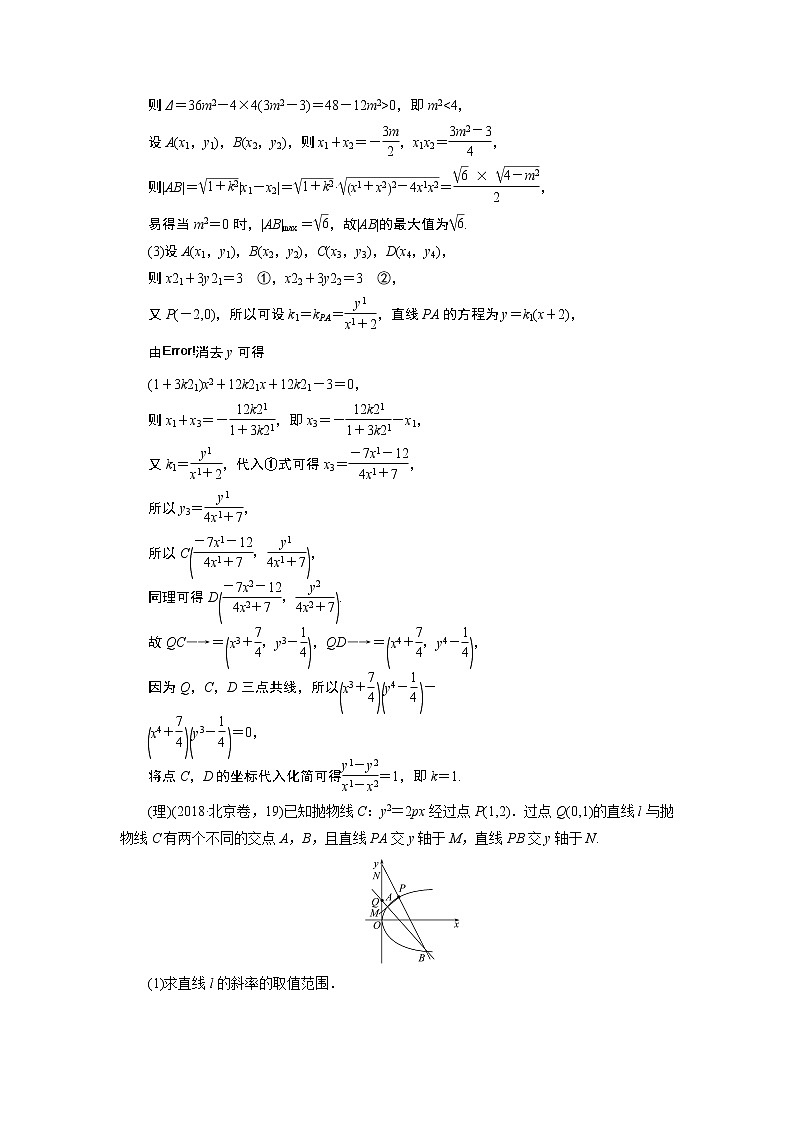 则 Δ＝36m²－4×4(3m²－3)＝48－12m²>0，即 m²<4，
设 A(x1，y1)，B(x2，y2)，则 x1＋x2＝－\frac{3m}{2}，x1x2＝\frac{3m²－3}{4}，
则|AB|＝\sqrt{1＋k²}|x1－x2|＝\sqrt{1＋k²}·\sqrt{(x1＋x2)²－4x1x2}＝\frac{\sqrt{6} × \sqrt{4－m²}}{2}，
易得当 m²＝0 时，|AB|max＝\sqrt{6}，故|AB|的最大值为\sqrt{6}.
(3)设 A(x1，y1)，B(x2，y2)，C(x3，y3)，D(x4，y4)，
则 x21＋3y21＝3　①，x22＋3y22＝3　②，
又 P(－2,0)，所以可设 k1＝kPA＝\frac{y1}{x1＋2}，直线 PA 的方程为 y＝k1(x＋2)，
由Error!消去 y 可得
(1＋3k21)x2＋12k21x＋12k21－3＝0，
则 x1＋x3＝－\frac{12k21}{1＋3k21}，即 x3＝－\frac{12k21}{1＋3k21}－x1，
又 k1＝\frac{y1}{x1＋2}，代入①式可得 x3＝\frac{－7x1－12}{4x1＋7}，
所以 y3＝\frac{y1}{4x1＋7}，
所以 C(\frac{－7x1－12}{4x1＋7}，\frac{y1}{4x1＋7})，
同理可得 D(\frac{－7x2－12}{4x2＋7}，\frac{y2}{4x2＋7}).
故 QC―→＝(x3＋\frac{7}{4}，y3－\frac{1}{4})，QD―→＝(x4＋\frac{7}{4}，y4－\frac{1}{4})，
因为 Q，C，D 三点共线，所以(x3＋\frac{7}{4})(y4－\frac{1}{4})－
(x4＋\frac{7}{4})(y3－\frac{1}{4})＝0，
将点 C，D 的坐标代入化简可得\frac{y1－y2}{x1－x2}＝1，即 k＝1.
(理)(2018·北京卷，19)已知抛物线 C：y2＝2px 经过点 P(1,2)．过点 Q(0,1)的直线 l 与抛
物线 C 有两个不同的交点 A，B，且直线 PA 交 y 轴于 M，直线 PB 交 y 轴于 N.
y
N
P
Q A
M
O x
B
(1)求直线 l 的斜率的取值范围．